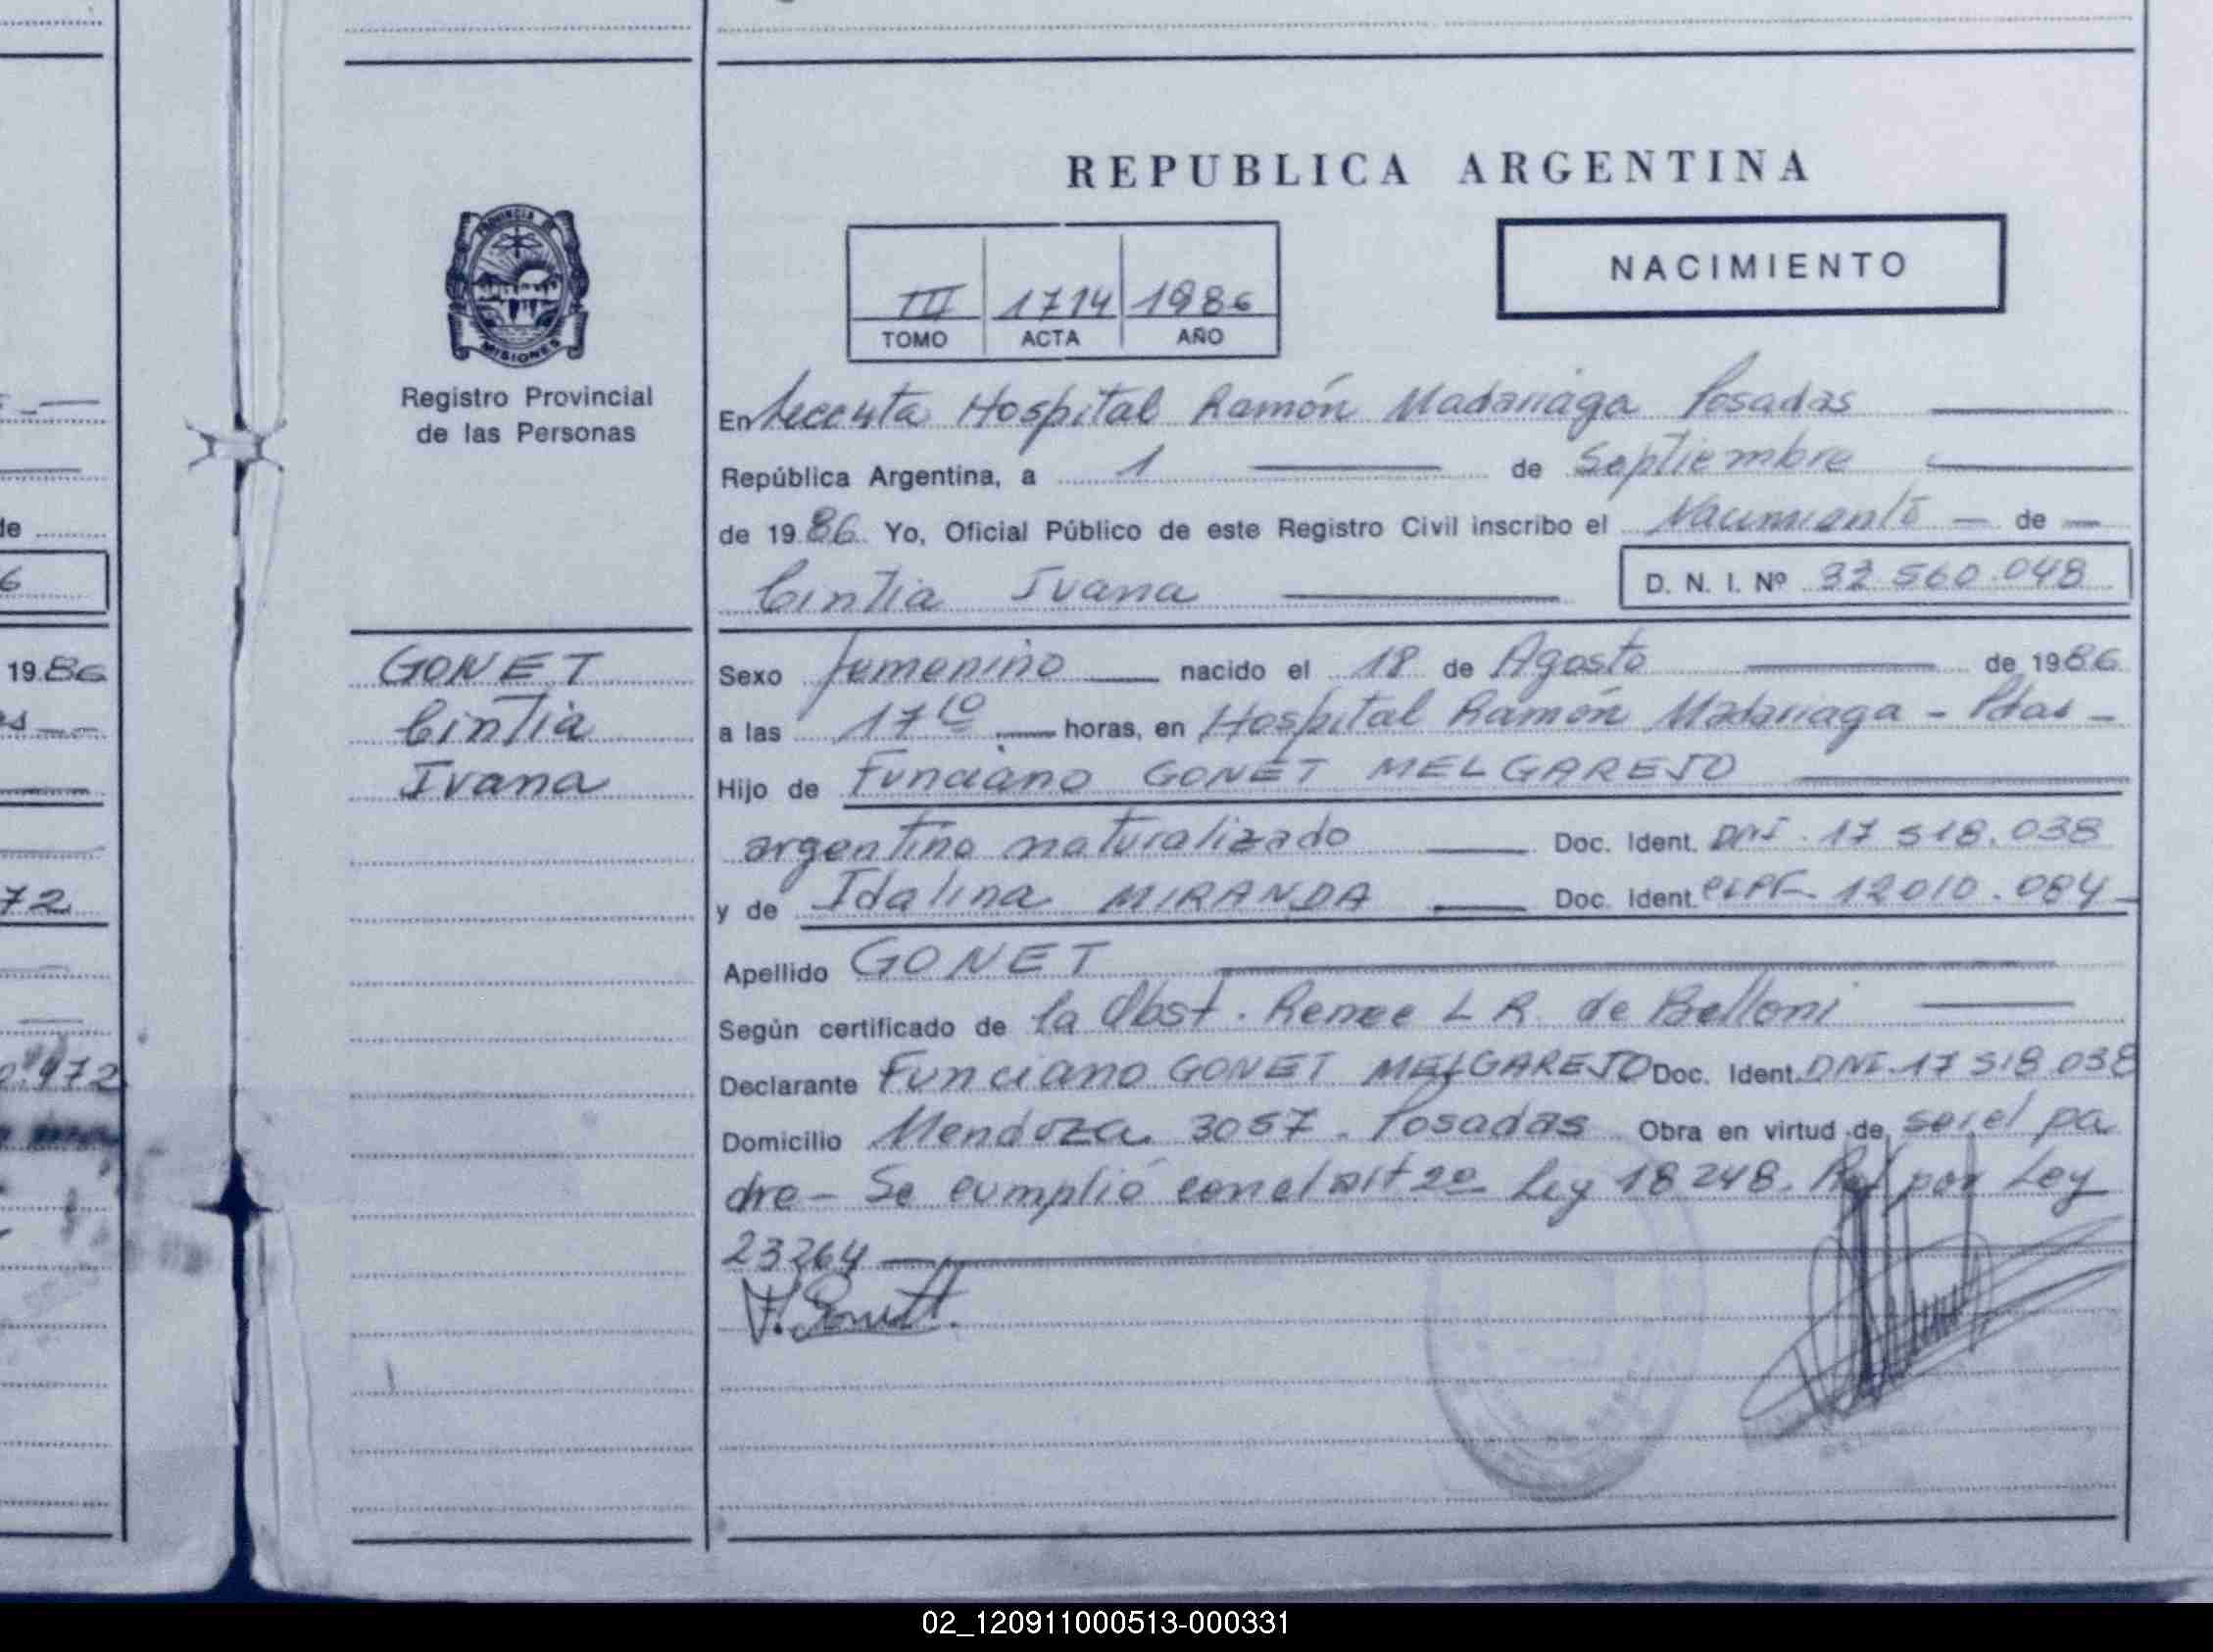 REPUBLICA ARGENTINA
NACIMIENTO
III 1714 1986
TOMO ACTA AÑO
PROVINCIA DE
MISIONES
Registro Provincial
de las Personas
En Hospital Ramón Madariaga Posadas
República Argentina, a 1 de Septiembre
de 1986 Yo, Oficial Público de este Registro Civil inscribo el Nacimiento de
Cintia Ivana D. N. I. Nº 32 560.048
GONET
Cintia
Ivana
Sexo femenino nacido el 18 de Agosto de 1986
a las 17 10 horas, en Hospital Ramón Madariaga - Pdas -
Hijo de Funciano GONET MELGAREJO
argentino naturalizado Doc. Ident. DNI. 17 518.038
y de Idalina MIRANDA Doc. Ident. 12010.084
Apellido GONET
Según certificado de la Obst. Renee L R de Belloni
Declarante Funciano GONET MELGAREJO Doc. Ident. DNI. 17 518 038
Domicilio Mendoza 3057. Posadas Obra en virtud de ser el pa
dre - Se cumplió con el art 2º Ley 18.248. Ref por Ley
23264
de
6
1986
72
0.972
02_120911000513-000331